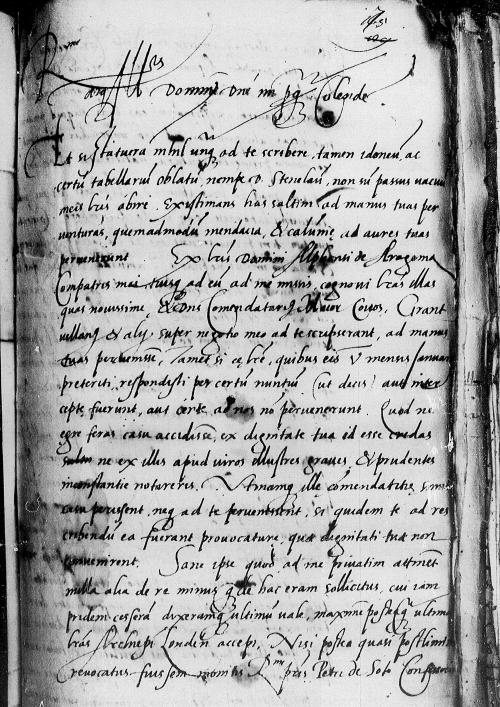 175
R.me
atq Ill.is Domine Dne mi pq Colende
Et si statuera nihil unq ad te scribere, tamen idoneu, ac
certu tabellariu oblatu, nempe D. Stenelau, non su passus vacuu
meis lris abire. Existimans has saltim ad manus tuas per
venturas, quemadmodu mendacia, & calunie ad aures tuas
pervenerunt Ex lris Domini Alphonsi de Aragoma
Compatris mei tuisq ad eu, ad me missis, cognovi lras illas
quas novissime, & Dns Comendatari Maior Covos, Grant
villanq, & alij super negotio meo ad te scripserant, ad manus
tuas pervenisse, tametsi ce lre, quibus eis V mensis Januarii
preteriti, respondisti per certu nuntiu (ut dicis) aut inter
cepte fuerunt, aut certe ad nos no pervenerunt. Quod ne
egre feras casu accidisse, ex dignitate tua id esse credas
ne ex illis apud viros illustres graves, & prudentes
inconstantie notareris. Utinamq ille comendatitie, simi
casu perissent, neq ad te pervenissent, si quidem te ad res
cribendu ea fuerant provocature, que dignitati tue non
convenirent. Sane ipse quod ad me privatim attinet
nulla alia de re minus q de hac eram sollicitus, cui iam
pridem cessera dixeramq ultimu vale, maxime posteaq ultim
lras Londen accepi. Nisi postea quasi postlimin
revocatus fuissem monitis R.mi pris Petri de Soto Confessor